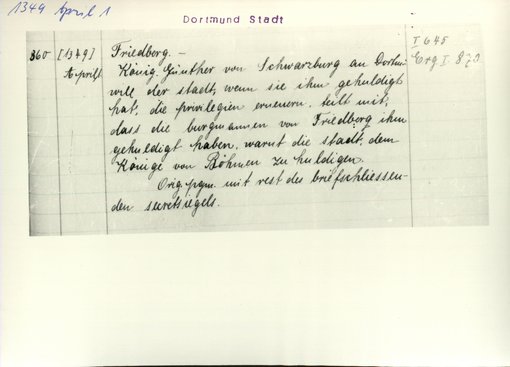 1349 April 1
Dortmund Stadt
360 [1349] April 1. Friedberg. –
I 645
Erg I. 870
König Günther von Schwarzburg an Dortm:
will der stadt, wenn sie ihm gehuldigt
hat, die privilegien erneuern, teilt mit,
dass die burgmannen von Friedberg ihm
gehuldigt haben, warnt die stadt, dem
Könige von Böhmen zu huldigen.
Orig. pgm. mit rest des briefschliessen-
den secretsiegels.